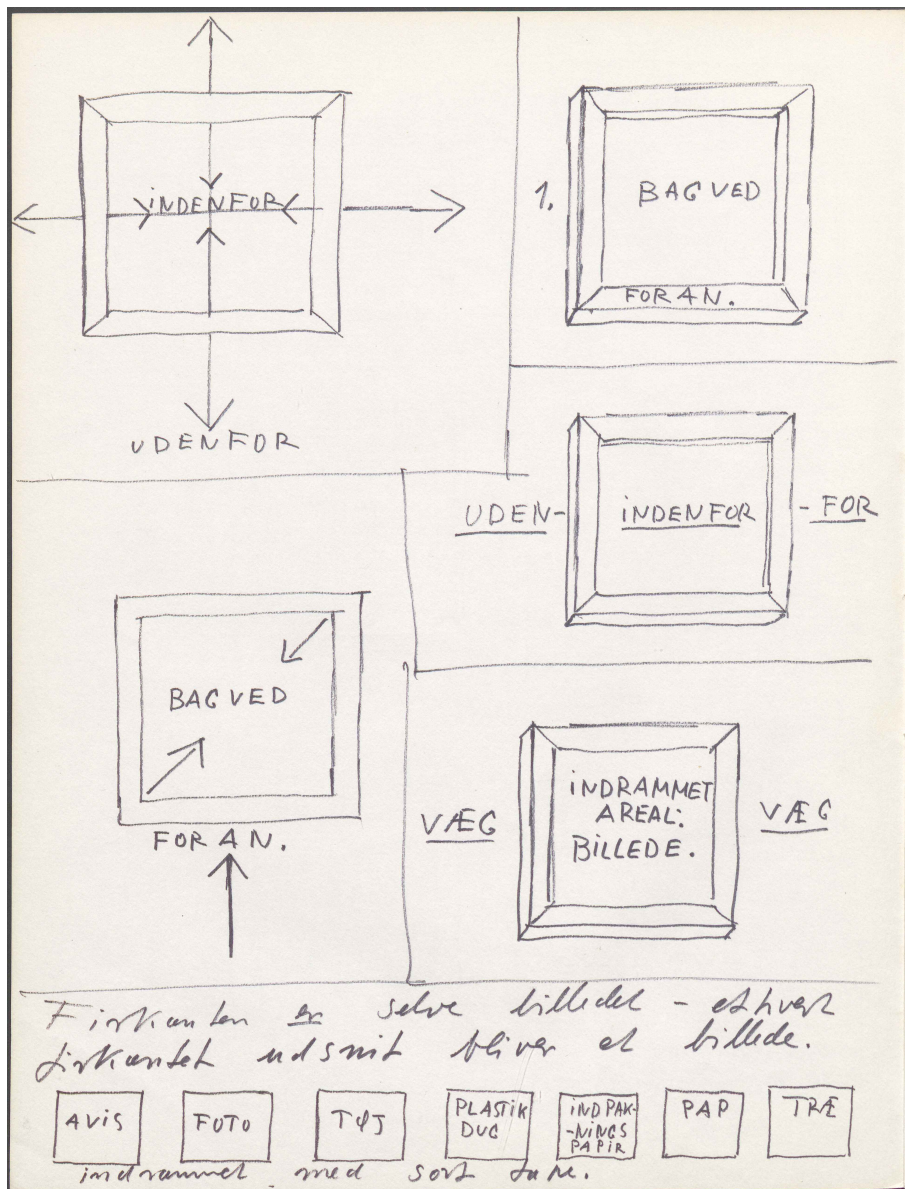 INDENFOR
UDENFOR
1.
BAGVED
FORAN.
UDEN- INDENFOR - FOR
BAGVED
FORAN.
VÆG
INDRAMMET
AREAL:
BILLEDE.
VÆG
Firkanten er selve billedet - ethvert
firkantet udsnit bliver et billede.
AVIS
FOTO
TØJ
PLASTIK
DUG
INDPAK-
-NINGS
PAPIR
PAP
TRÆ
indrammet med sort tape.